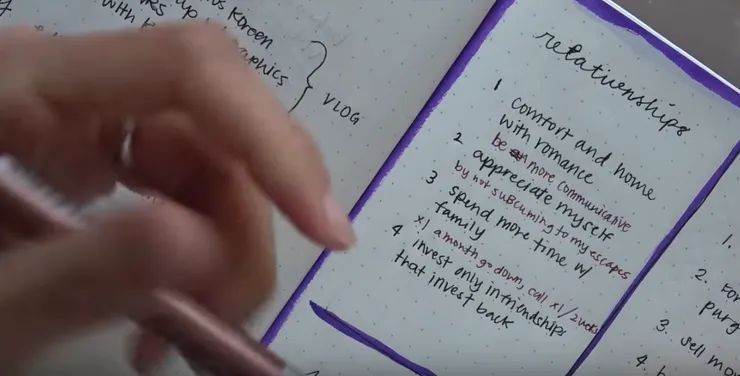 Korean
with
up
graphics
VLOG
relationships
1 comfort and home
with romance
be more communicative
2 appreciate myself
by not subcuming to my escapes
3 spend more time w/
family
x1 a month go down, call x1/2weeks
4 invest only in friendships
that invest back
1.
2. For
purg
3. sell mo
4.